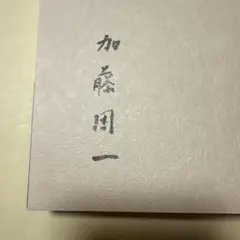 加藤周一